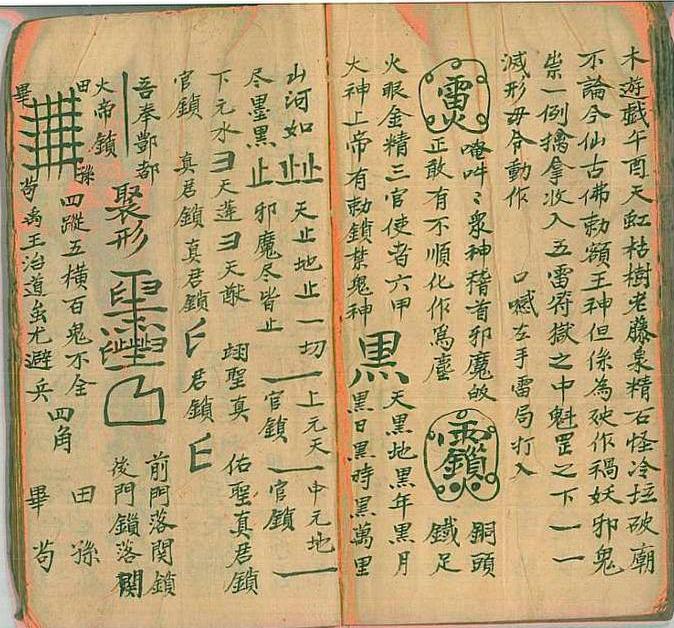 木遊戲午酉天虹枯樹老藤泉精石怪冷坵破廟
不論今仙古佛勅額王神但係為殃作禍妖邪鬼
祟一例擒拿收入五雷符獄之中魁罡之下一一
滅形毋令動作 口噀左手雷局打入
唵吽〻眾神稽首邪魔皈 銅頭
正敢有不順化作為塵 鐵足
火眼金精三官使者六甲 黑 天黑地黑年黑月
大神上帝有勅鎖禁鬼神 黑日黑時黑萬里
山河如 止 止 天止地止一切 上元天 中元地
尽墨黑止邪魔尽皆止 官鎖 官鎖
下元水 天蓬 天猷 翊聖真 佑聖真君鎖
官鎖 真君鎖真君鎖 君鎖
吾奉酆都 聚形 前門落関鎖
火帝鎖 後門鎖落関
田 孫 四蹤五横百鬼不全 田 孫
畢 茍 禹王治道蚩尤避兵 四角 畢 茍